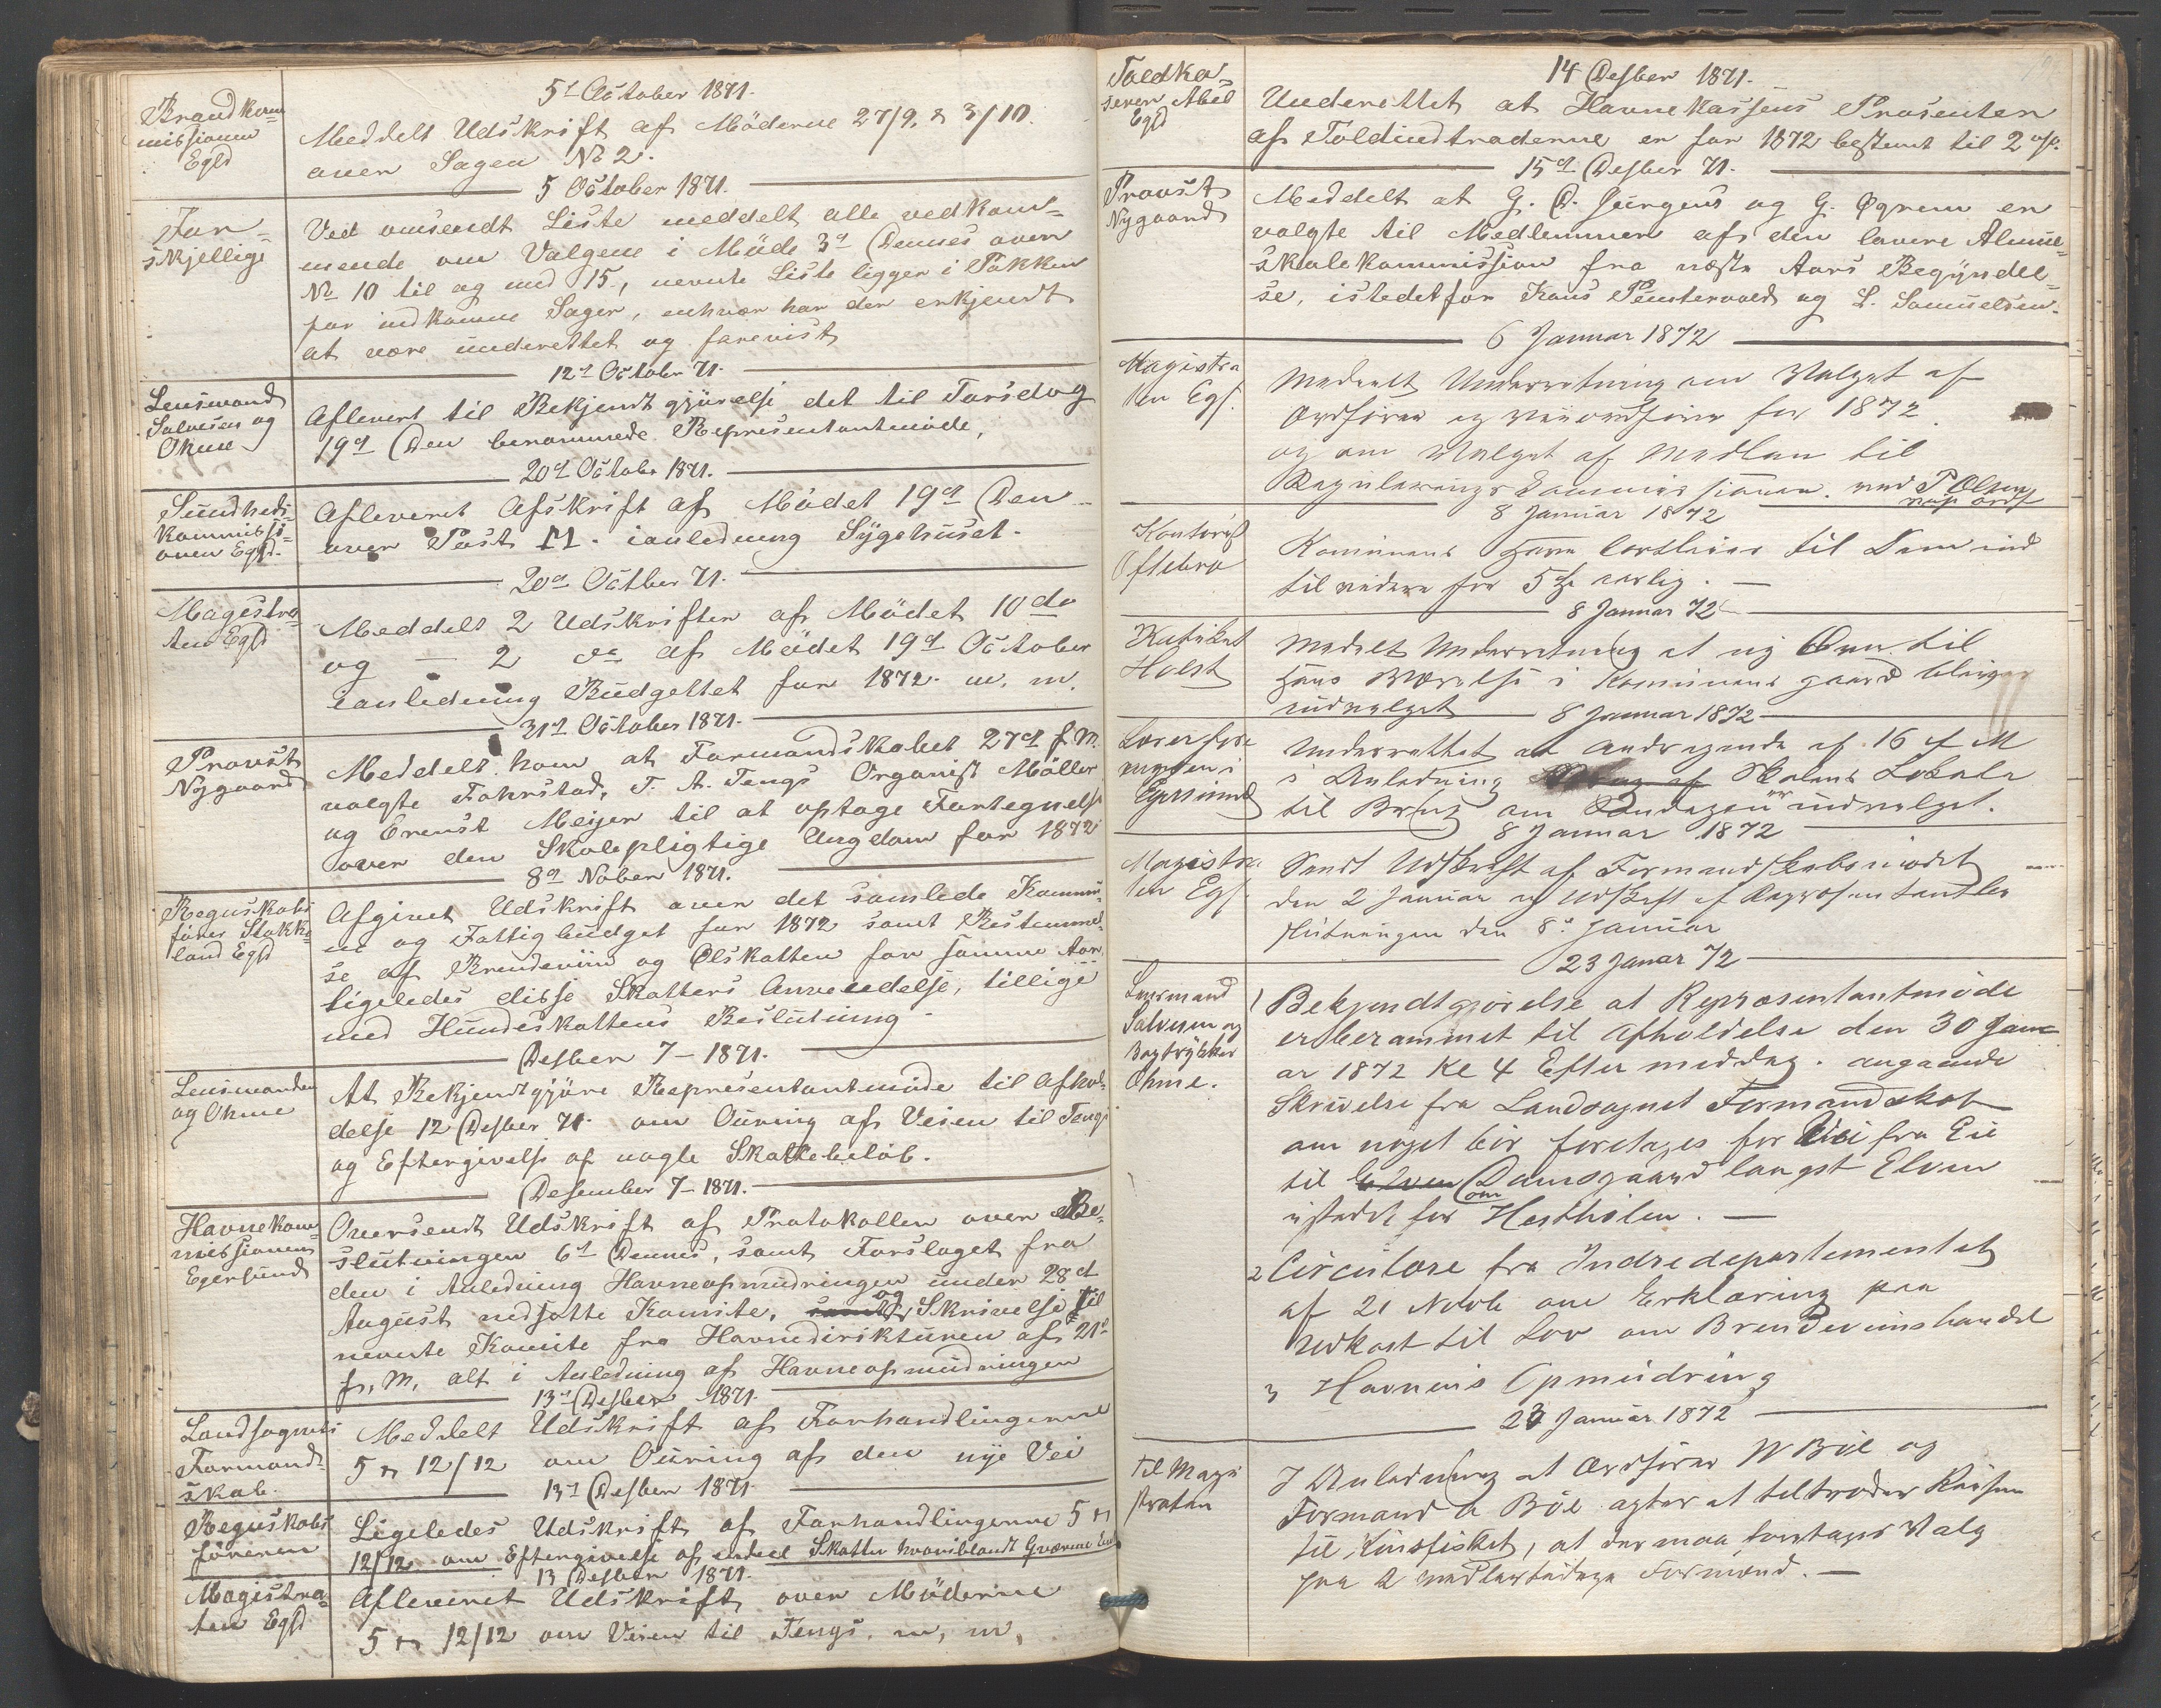 5t October 1871.
Brandkom=
missionen
Egsd
Meddelt Udskrift af Möderne 27/9, & 3/10.
over Sagen No 2.
5 October 1871.
For=
skjellige
Ved omsendt Liste meddelt alle vedkom=
mende om Valgene i Möde 3d Dennes over
No 10 til og med 15, nevnte Liste ligger i Pakken
for indkomne Sager, enhver har der erkjendt
at være underettet og forevist
12t October 71.
Lensmand
Salvesen og
Ohme
Afleveret til Bekjendtgjörelse det til Torsdag
19d Den berammede Representantmöde,
20d October 1871.
Sundheds
kommissi=
onen Egsd.
Afleveret Afskrift af Mödet 19d Den
over Post 11. ianledning Sygehuset.
20d Octber 71.
Magistra
ten Egsd
Meddelt 2 Udskrifter af Mödet 10 do
og — 2 do af Mödet 19d October
ianledning Budgettet for 1872. m. m.
31t October 1871.
Provst
Nygaard
Meddelt ham at Formandskabet 27d f. M.
valgte Fokrstad, T. A. Tengs Organist Möller
og Ernst Meyer til at optage Fortegnelse
over den Skolepligtige Ungdom for 1872
8d Nober 1871.
Reguskabs
förer Stokke
land Egsd
Afgivet Udskrift over det samlede Kommu=
ne og Fattigbudget for 1872 samt Bestemmel
se af Brendeviin og Ölskatten for samme Aar
ligeledes disse Skatters Anvendelse, tillige
med Hundeskattens Beslutning
Desber 7 - 1871.
Lensmanden
og Ohme
At Bekjendtgjöre Representantmöde til Afhol=
delse 12 Desber 71. om Ouring af Veien til Tengs
og Eftergivelse af nogle Skattebelöb.
Desember 7 - 1871.
Havnekom=
missionen
Egersund
Oversendt Udskrift af Protokollen over Be=
slutningen 6t Dennes, samt Forslaget fra
den i Anledning Havneopmudringen under 28d
August nedsatte Komite, samt og Skrivelse til
nevnte Komite fra Havnedirekturen af 21d
f. M. alt i Anledning af Havneopmudringen
13d Desber 1871.
Landsognets
Formand=
skab.
Meddelt Udskrift af Forhandlingerne
5 & 12/12 om Ouring af den nye Vei
13d Desber 1871
Reguskabs
föreren
Ligeledes Udskrift af Forhandlingerne 5 &
12/12 om Eftergivelse af endeel Skatter hvoriblandt
13 Desber 1871.
Magistra=
ten Egsd
Afleveret Udskrift over Möderne
5 & 12/12 om Veien til Tengs. m, m,
14 Desber 1871.
Toldkas=
serer Abel
Egsd
Underettet at Havnekassens Prosenter
af Toldindtraderne er for 1872 bestemt til 2 %.
15d Desber 71.
Provst
Nygaard
Meddelt at G. D. Jürgens og G. Ögrein er
valgte til Medlemmer af den lavere Almue=
skolekommission fra næste Aars Begyndel=
se, istedetfor Hans Puntervold og L. Samuelsen.
6 Januar 1872
Magistra
ten Egs.
Meddelt Underretning om Valget af
Ordfører og viceordfører for 1872.
og om Valget af Medlem til
Reguleringskommissionen. ved P Olsen
8 Januar 1872
Kontorist
Oftebro
Kommunens til
til videre for 5 aarlig. —
8 Januar 72
Kateket
Holst
Meddelt Underretning at ny Ovn til
Hans Værelse i Kommunens gaard bliver
indvelget
8 Januar 1872
i
Egersund
Underrettet at Andragende af 16 f M
i Anledning Skolens Lokale
til Brug om Søndagen er indvelget.
8 Januar 1872
Magistra
ten Egs.
Sendt Udskrift af Formandskabsmødet
den 2 Januar og Udskrift af Repræsentantbe
slutningen den 8d Januar
23 Januar 72
Lensmand
Salvesen og
Bogtrykker
Ohme.
1 Bekjendtgjørelse at Repræsentantmøde
er berammet til Afholdelse den 30 Janu
ar 1872 Kl 4 Eftermiddag. angaaende
Skrivelse fra Landsognets Formandskab
om noget bør foretages for Vei fra Eie
til Elven Damsgaard langst Elven
istedet for om Hestholen. —
2 Circulære fra Indredepartementet
af 21 Novb om Erklæring paa
Udkast til Lov om Brendeviinshandel
3 Havnens Opmudring
23 Januar 1872
Til Magi
straten
I Anledning at Ordfører W Böe og
Formand A Böe agter at tiltræder Reisen
til Vinsfisket, at der maa foretages Valg
paa 2 midlertidige Formænd. —